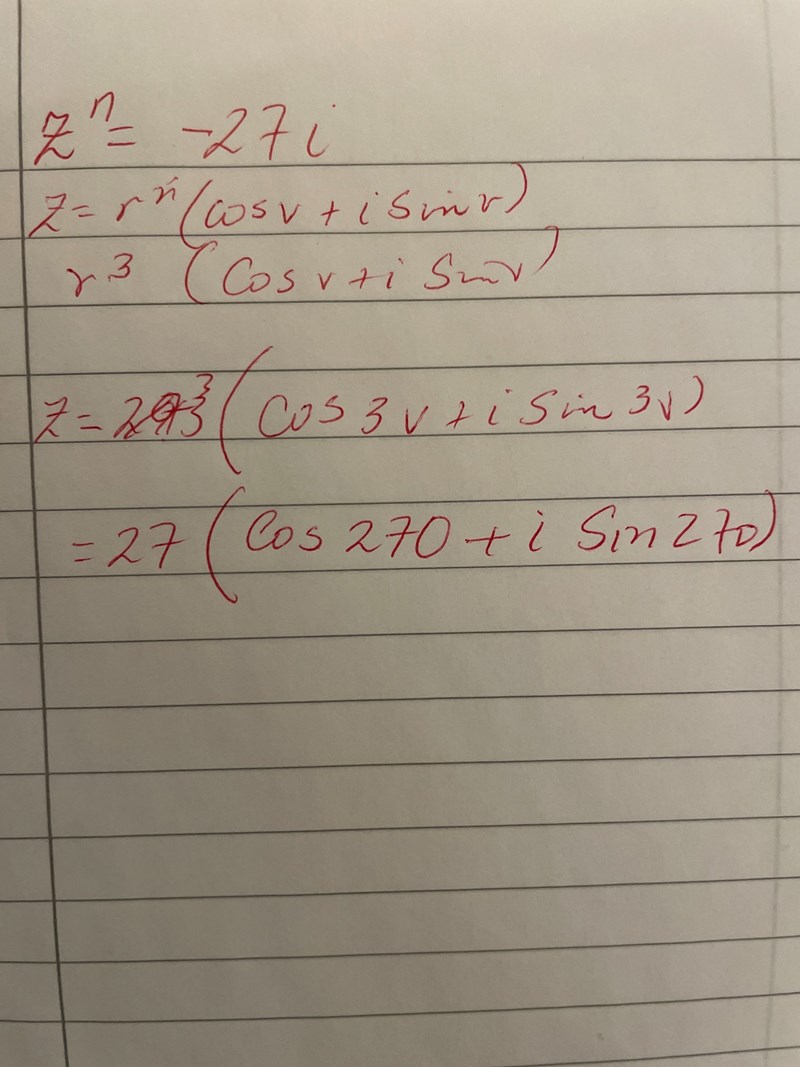 zⁿ = -27i
z = rⁿ (cos v + i sin v)
r³ (Cos v + i Sin v)
z = 3³ (Cos 3v + i Sin 3v)
= 27 (Cos 270 + i Sin 270)